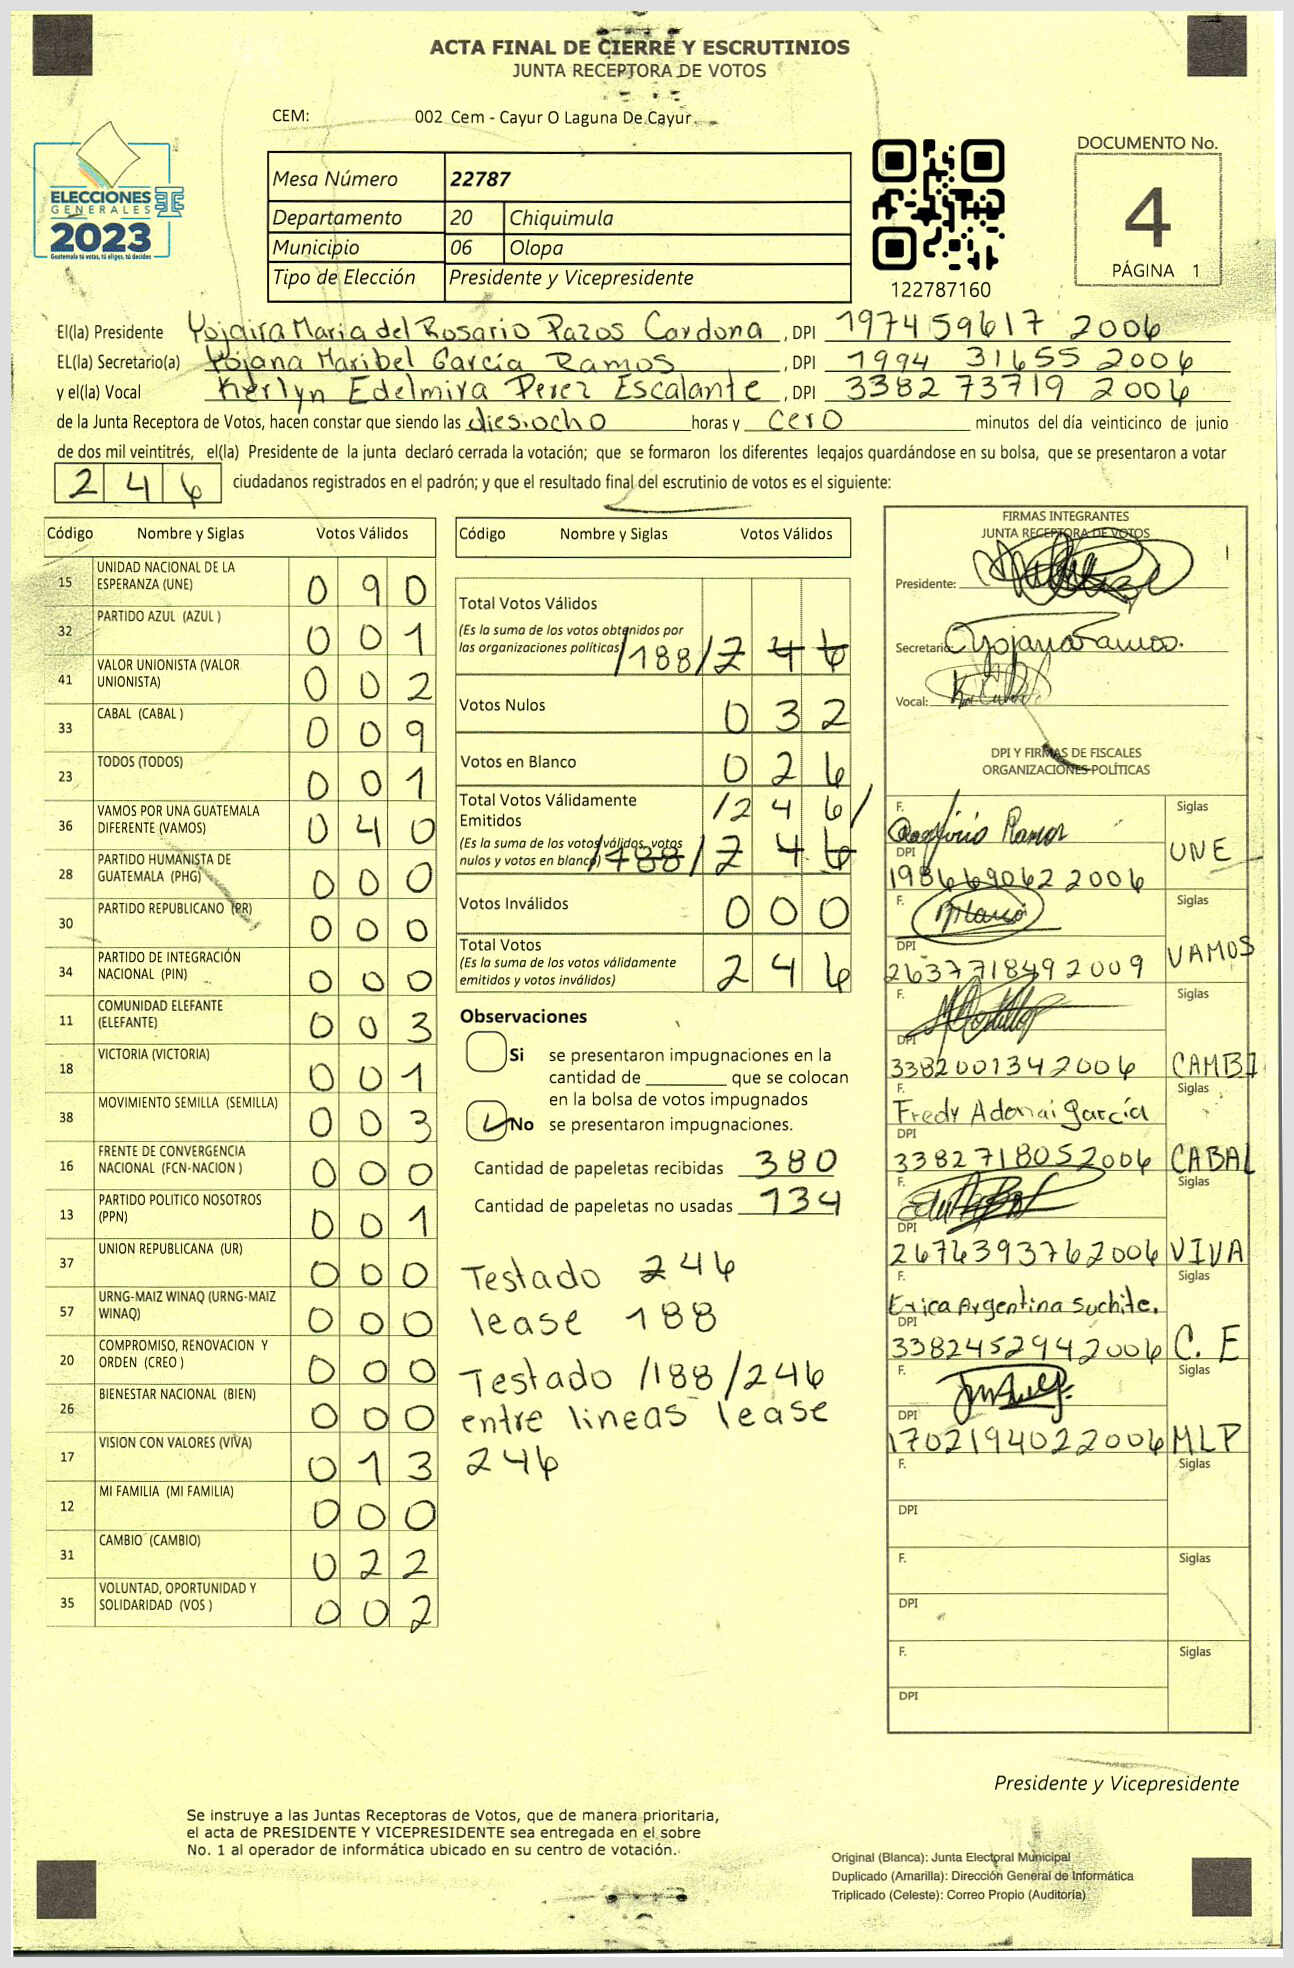 ACTA FINAL DE CIERRE Y ESCRUTINIOS
JUNTA RECEPTORA DE VOTOS
CEM: 002 Cem - Cayur O Laguna De Cayur
ELECCIONES
GENERALES
2023
Guatemala tú votas, tú eliges, tú decides
Mesa Número 22787
Departamento 20 Chiquimula
Municipio 06 Olopa
Tipo de Elección Presidente y Vicepresidente
122787160
DOCUMENTO No.
4
PÁGINA 1
El(la) Presidente Yojaira Maria del Rosario Pazos Cardona, DPI 197459617 2006
EL(la) Secretario(a) Yojana Maribel García Ramos, DPI 1994 31655 2006
y el(la) Vocal Kerlyn Edelmira Perez Escalante, DPI 3382 73719 2006
de la Junta Receptora de Votos, hacen constar que siendo las diesiocho horas y cero minutos del día veinticinco de junio
de dos mil veintitrés, el(la) Presidente de la junta declaró cerrada la votación; que se formaron los diferentes legajos guardándose en su bolsa, que se presentaron a votar
246 ciudadanos registrados en el padrón; y que el resultado final del escrutinio de votos es el siguiente:
Código Nombre y Siglas Votos Válidos
15 UNIDAD NACIONAL DE LA ESPERANZA (UNE) 0 9 0
32 PARTIDO AZUL (AZUL ) 0 0 1
41 VALOR UNIONISTA (VALOR UNIONISTA) 0 0 2
33 CABAL (CABAL ) 0 0 9
23 TODOS (TODOS) 0 0 1
36 VAMOS POR UNA GUATEMALA DIFERENTE (VAMOS) 0 4 0
28 PARTIDO HUMANISTA DE GUATEMALA (PHG) 0 0 0
30 PARTIDO REPUBLICANO (PR) 0 0 0
34 PARTIDO DE INTEGRACIÓN NACIONAL (PIN) 0 0 0
11 COMUNIDAD ELEFANTE (ELEFANTE) 0 0 3
18 VICTORIA (VICTORIA) 0 0 1
38 MOVIMIENTO SEMILLA (SEMILLA) 0 0 3
16 FRENTE DE CONVERGENCIA NACIONAL (FCN-NACION ) 0 0 0
13 PARTIDO POLITICO NOSOTROS (PPN) 0 0 1
37 UNION REPUBLICANA (UR) 0 0 0
57 URNG-MAIZ WINAQ (URNG-MAIZ WINAQ) 0 0 0
20 COMPROMISO, RENOVACION Y ORDEN (CREO ) 0 0 0
26 BIENESTAR NACIONAL (BIEN) 0 0 0
17 VISION CON VALORES (VIVA) 0 1 3
12 MI FAMILIA (MI FAMILIA) 0 0 0
31 CAMBIO (CAMBIO) 0 2 2
35 VOLUNTAD, OPORTUNIDAD Y SOLIDARIDAD (VOS ) 0 0 2
Código Nombre y Siglas Votos Válidos
Total Votos Válidos
(Es la suma de los votos obtenidos por
las organizaciones políticas) /188/ 2 4 6
Votos Nulos 0 3 2
Votos en Blanco 0 2 6
Total Votos Válidamente
Emitidos /2 4 6/
(Es la suma de los votos válidos, votos
nulos y votos en blanco) /188/ 2 4 6
Votos Inválidos 0 0 0
Total Votos
(Es la suma de los votos válidamente
emitidos y votos inválidos) 2 4 6
Observaciones
Si se presentaron impugnaciones en la
cantidad de ________ que se colocan
en la bolsa de votos impugnados
No se presentaron impugnaciones.
Cantidad de papeletas recibidas 380
Cantidad de papeletas no usadas 134
Testado 246
lease 188
Testado /188/246
entre lineas lease
246
FIRMAS INTEGRANTES
JUNTA RECEPTORA DE VOTOS
Presidente:
Secretario
Vocal:
DPI Y FIRMAS DE FISCALES
ORGANIZACIONES POLÍTICAS
F. Ramos Siglas
DPI UNE
198669062 2006
F. Siglas
DPI VAMOS
2637718492009
F. Siglas
DPI
3382001342006 CAMBI
F. Fredy Adonai García Siglas
DPI
3382718052006 CABAL
F. Siglas
DPI
2676393762006 VIVA
F. Erica Argentina Suchite. Siglas
DPI
3382452942006 C. E
F. Siglas
DPI
1702194022006 MLP
F. Siglas
DPI
F. Siglas
DPI
F. Siglas
DPI
Presidente y Vicepresidente
Se instruye a las Juntas Receptoras de Votos, que de manera prioritaria,
el acta de PRESIDENTE Y VICEPRESIDENTE sea entregada en el sobre
No. 1 al operador de informática ubicado en su centro de votación.
Original (Blanca): Junta Electoral Municipal
Duplicado (Amarilla): Dirección General de Informática
Triplicado (Celeste): Correo Propio (Auditoría)